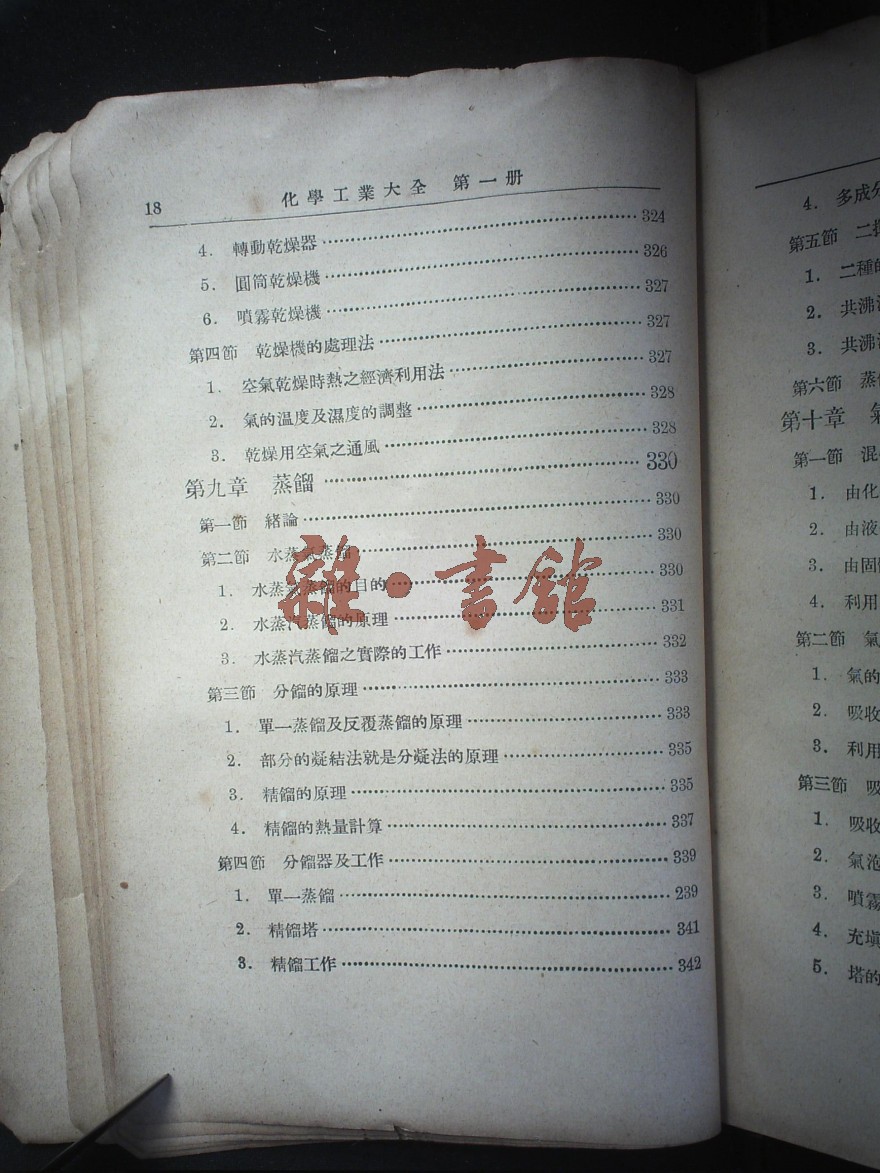 18 化學工業大全 第一册
4. 轉動乾燥器 324
5. 圓筒乾燥機 326
6. 噴霧乾燥機 327
第四節 乾燥機的處理法 327
1. 空氣乾燥時熱之經濟利用法 327
2. 氣的溫度及濕度的調整 328
3. 乾燥用空氣之通風 328
第九章 蒸餾 330
第一節 緒論 330
第二節 水蒸氣蒸餾 330
1. 水蒸氣蒸餾的目的 330
2. 水蒸汽蒸餾的原理 331
3. 水蒸汽蒸餾之實際的工作 332
第三節 分餾的原理 333
1. 單一蒸餾及反覆蒸餾的原理 333
2. 部分的凝結法就是分凝法的原理 335
3. 精餾的原理 335
4. 精餾的熱量計算 337
第四節 分餾器及工作 339
1. 單一蒸餾 239
2. 精餾塔 341
3. 精餾工作 342
雜·書館
4. 多成分
第五節 二
1. 二種的
2. 共沸
3. 共沸
第六節 蒸
第十章 氣
第一節 混
1. 由化
2. 由液
3. 由固
4. 利用
第二節 氣
1. 氣的
2. 吸收
3. 利用
第三節 吸
1. 吸收
2. 氣泡
3. 噴霧
4. 充塡
5. 塔的